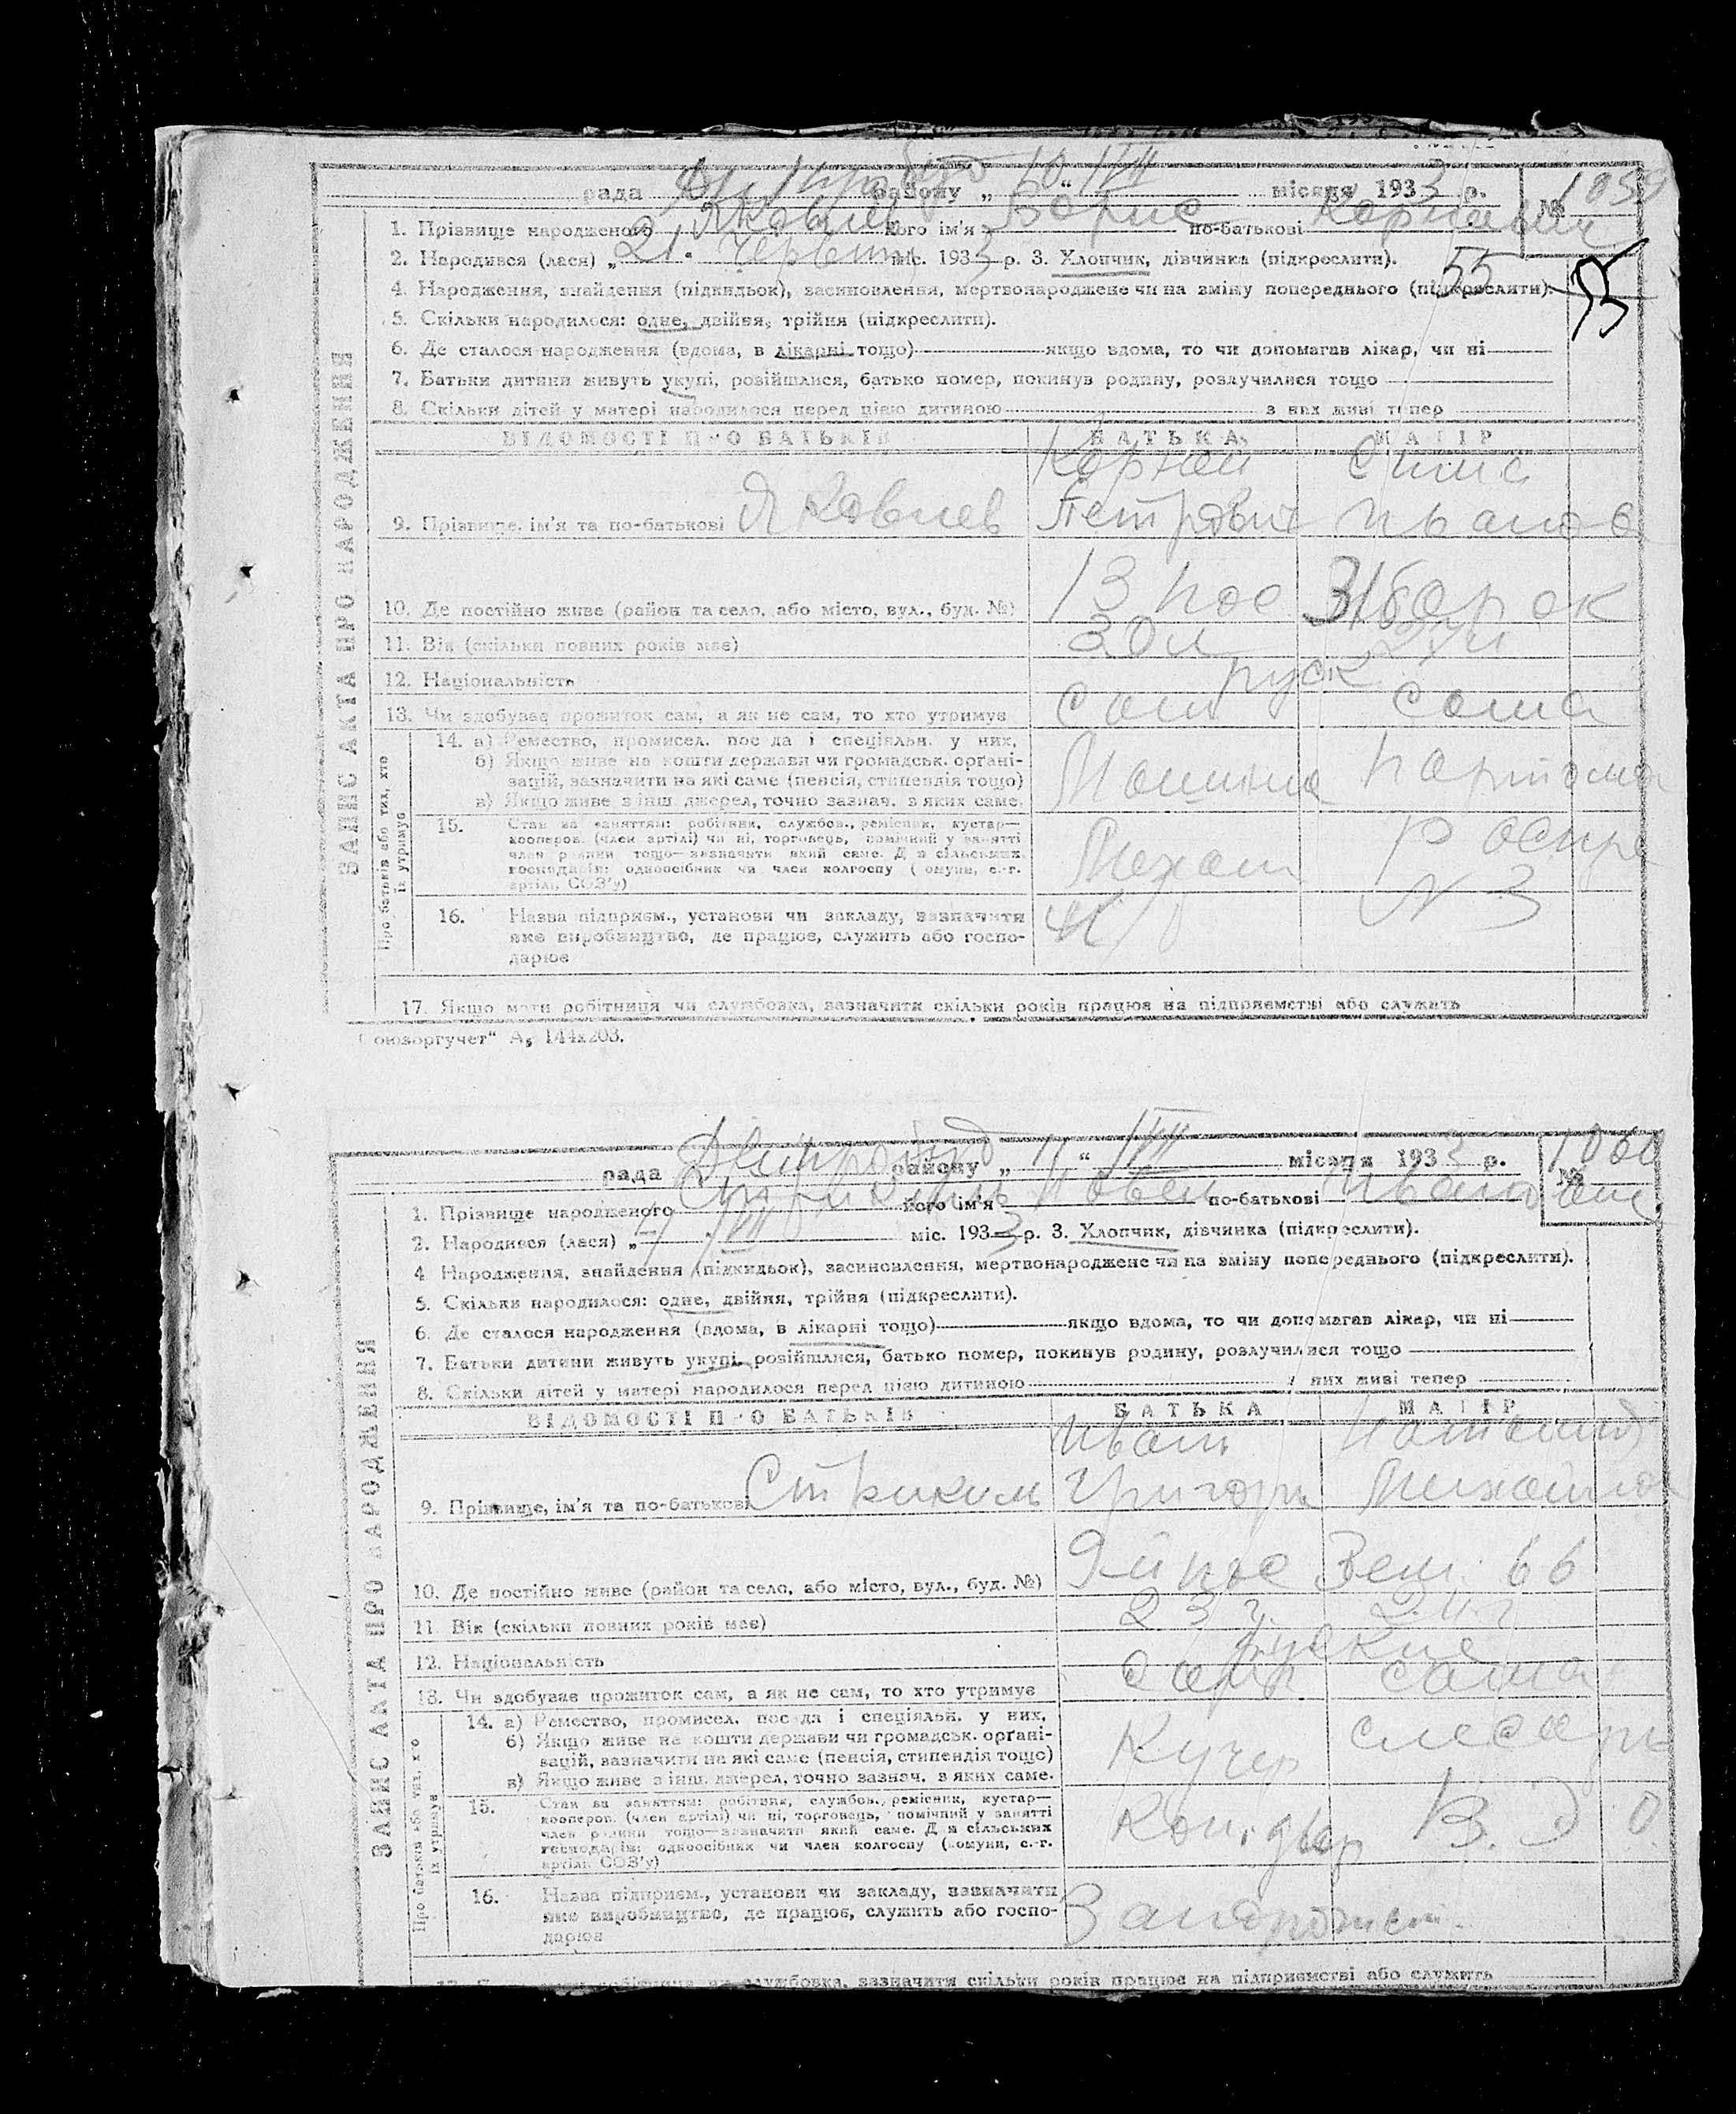 рада Дніпробуд району „ 10 “ VII місяця 1933 р. № 1059
1. Прізвище народженого Яковлев його ім'я Борис по-батькові Корнеевич
2. Народився (лася) „21. червня міс. 1933 р. 3. Хлопчик, дівчинка (підкреслити).
55
4. Народження, знайдення (підкидьок), засиновлення, мертвонароджене чи на зміну попереднього (підкреслити).
5. Скільки народилося: одне, двійня, трійня (підкреслити).
6. Де сталося народження (вдома, в лікарні тощо) якщо вдома, то чи допомагав лікар, чи ні
7. Батьки дитини живуть укупі, розійшлися, батько помер, покинув родину, розлучилися тощо
8. Скільки дітей у матері народилося перед цією дитиною з них живі тепер
ЗАПИС АКТА ПРО НАРОДЖЕННЯ
ВІДОМОСТІ ПРО БАТЬКІВ БАТЬКА МАТІР
Корней
9. Прізвище, ім'я та по-батькові Яковлев Петрович Иванов
10. Де постійно живе (район та село, або місто, вул., буд. №) 13 пос 31 барак
11. Вік (скільки повних років має) 30 л
12. Національність руск
13. Чи здобуває прожиток сам, а як не сам, то хто утримує сам сама
Про батьків або тих, хто їх утримує
14. а) Ремество, промисел, посада і спеціяльн. у них,
б) Якщо живе на кошти держави чи громадськ. органі-
зацій, зазначити на які саме (пенсія, стипендія тощо)
в) Якщо живе з інш. джерел, точно зазнач. з яких саме.
15. Стан за заняттям: робітник, службов., ремісник, кустар—
кооперов. (член артілі) чи ні, торговець, помічний у занятті
член родини тощо—зазначити який саме. Для сільських
господарів: одноосібник чи член колгоспу (комуни, с.-г.
артілі, СОЗ'у)
16. Назва підприєм., установи чи закладу, зазначити № 3
яке виробництво, де працює, служить або госпо-
дарює
17. Якщо мати робітниця чи службовка, зазначити скільки років працює на підприємстві або служить
Союзоргучет“ А5 144х203.
рада Дніпробуд району „ 11 “ VII місяця 1933 р. № 1060
1. Прізвище народженого його ім'я по-батькові
2. Народився (лася) „ VII міс. 1933 р. 3. Хлопчик, дівчинка (підкреслити).
4 Народження, знайдення (підкидьок), засиновлення, мертвонароджене чи на зміну попереднього (підкреслити).
5. Скільки народилося: одне, двійня, трійня (підкреслити).
6. Де сталося народження (вдома, в лікарні тощо) якщо вдома, то чи допомагав лікар, чи ні
7. Батьки дитини живуть укупі, розійшлися, батько помер, покинув родину, розлучилися тощо
8. Скільки дітей у матері народилося перед цією дитиною з них живі тепер
ЗАПИС АКТА ПРО НАРОДЖЕННЯ
ВІДОМОСТІ ПРО БАТЬКІВ БАТЬКА МАТІР
Иван
9. Прізвище, ім'я та по-батькові Григорь Михайлов
10. Де постійно живе (район та село, або місто, вул., буд. №) 9й пос Зем. 66
11 Вік (скільки повних років має) 23 г.
12. Національність руские
13. Чи здобуває прожиток сам, а як не сам, то хто утримує сам сама
Про батьків або тих, хто їх утримує
14. а) Ремество, промисел, посада і спеціяльн. у них, Кучер слесарь
б) Якщо живе на кошти держави чи громадськ. органі-
зацій, зазначити на які саме (пенсія, стипендія тощо)
в) Якщо живе з інш. джерел, точно зазнач. з яких саме.
15. Стан за заняттям: робітник, службов., ремісник, кустар— Кон. двор
кооперов. (член артілі) чи ні, торговець, помічний у занятті
член родини тощо—зазначити який саме. Для сільських
господарів: одноосібник чи член колгоспу (комуни, с.-г.
артілі, СОЗ'у)
16. Назва підприєм., установи чи закладу, зазначити
яке виробництво, де працює, служить або госпо-
дарює
службовка, зазначити скільки років працює на підприємстві або служить